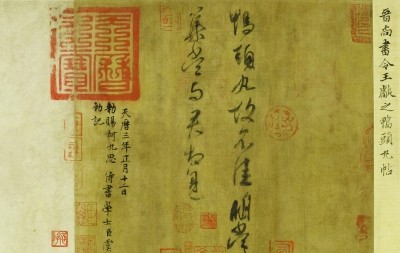 晉尚書令王獻之鴨頭丸帖
鴨頭丸故不佳明當
集當與君相見
天曆之寶
天曆三年正月十二日
勑賜柯九思 侍書學士臣虞
勑記